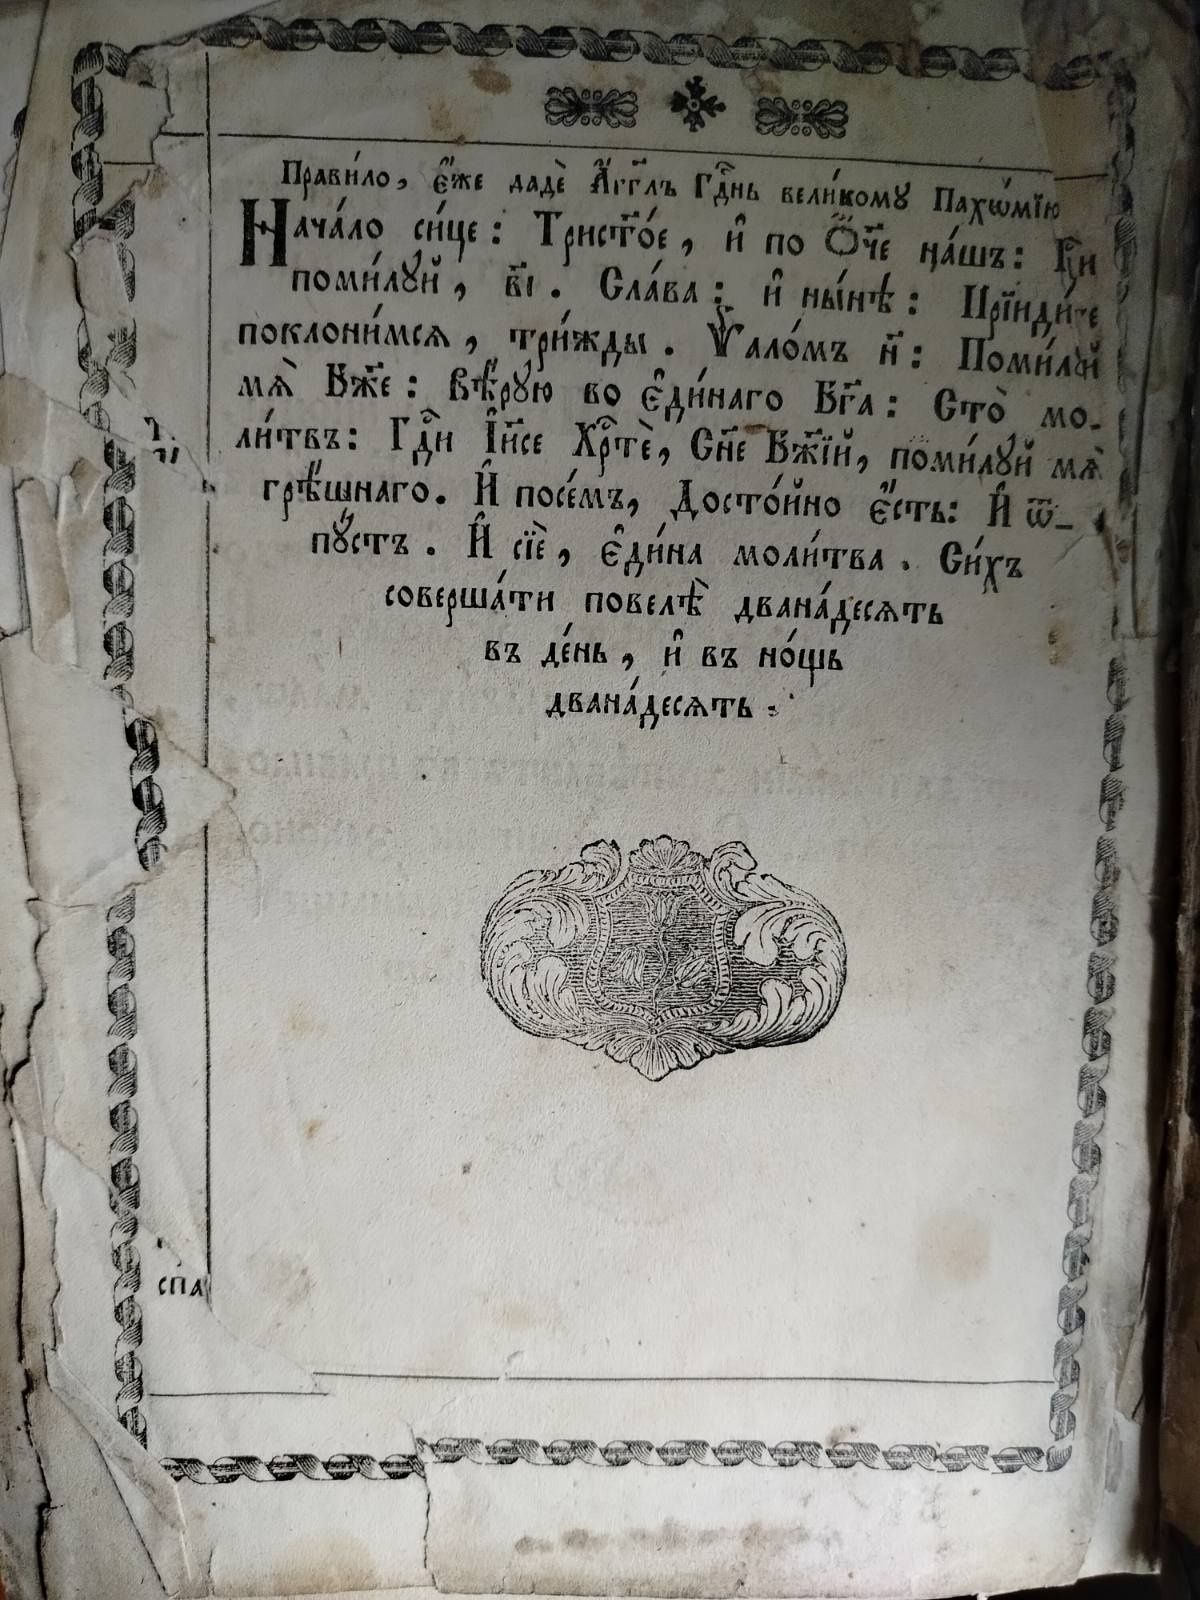 Прави́ло, є҆́же дадѐ А҆́гг҃лъ Гдⷭ҇нь вели́кому Пахѡ́мїю
Нача́ло си́це: Трист҃о́е, и҆ по Ѻ҆́ч҃е на́шъ: Гд҇и
поми́лꙋй, в҃і. Сла́ва: и҆ ны́нѣ: Прїиди́те
поклони́мсѧ, три́жды. Ѱало́мъ н҃: Поми́лꙋй
мѧ̀ Бж҃е: Вѣ́рꙋю во є҆ди́наго Бг҃а: Сто̀ мо-
ли́твъ: Гдⷭ҇и І҆и҃се Хрⷭ҇тѐ, Сн҃е Бж҃їй, поми́лꙋй мѧ̀
грѣ́шнаго. И҆ посе́мъ, Досто́йно є҆́сть: И҆ ѿ-
пꙋ́стъ. И҆ сїѐ, є҆ди́на моли́тва. Си́хъ
соверша́ти повелѣ̀ двана́десѧть
въ де́нь, и҆ въ но́щь
двана́десѧть.
спа